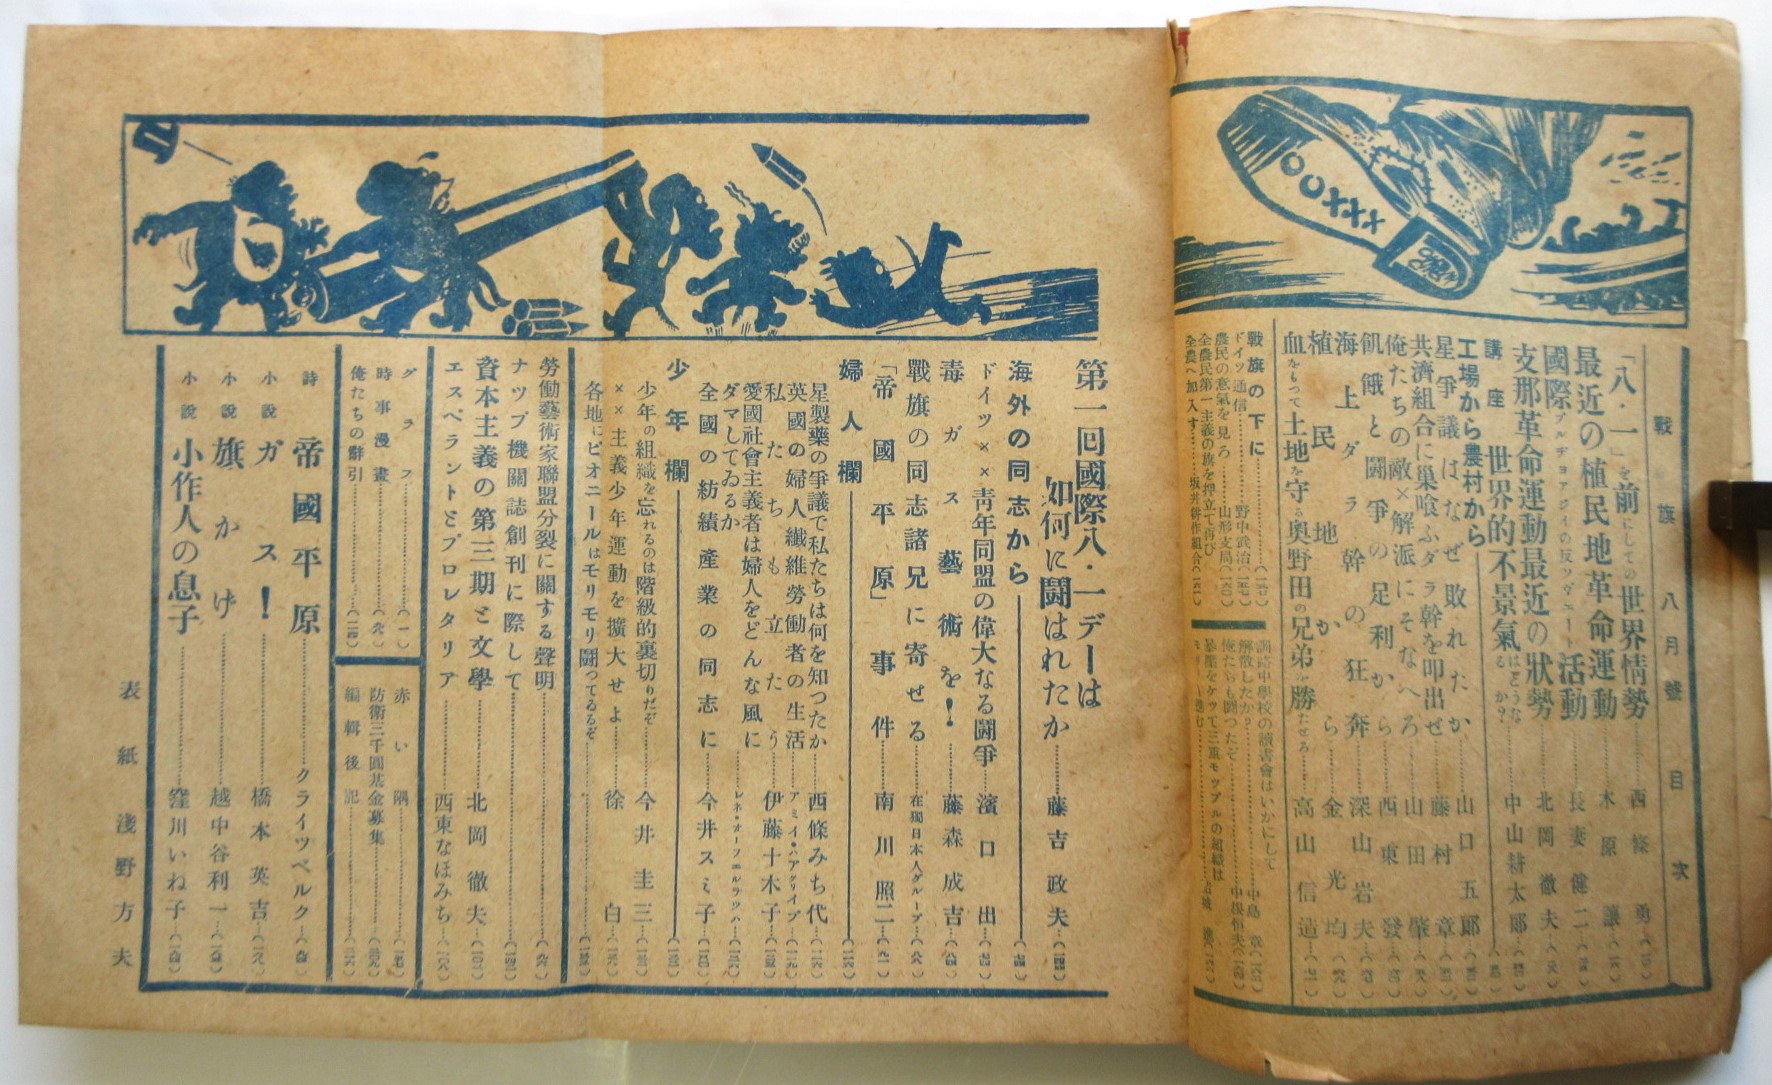 戰旗八月號目次
「八・一」を前にしての世界情勢 西條勇
最近の植民地革命運動 木原讓
國際ブルヂョアジイの反ソヴェート活動 長妻健二
支那革命運動最近の狀勢 北岡徹夫
講座 世界的不景氣はどうなるか? 中山耕太郎
工場から農村から
星爭議はなぜ敗れたか 山口五郎
共濟組合に巢喰ふダラ幹を叩出ぜ 藤村章
俺たちの敵×解派にそなへろ 山田肇
飢餓と鬪爭の足利から 西東發
海上ダラ幹の狂奔 深山岩夫
植民地から 金光均
血をもつて土地を守る奧野田の兄弟を勝たせろ 高山信造
戰旗の下に
ドイツ通信 野中武治
農民の意氣を見ろ 山形支局
全農民第一主義の旗を押立て再び
全農へ加入す 坂井耕作組合
中學校の讀書會はいかにして
解散したか? 中島章
俺たちも鬪つたぞ 中根恒夫
暴壓をケッて三重モップルの組織は
OOXXX
第一回國際八・一デーは
如何に鬪はれたか 藤吉政夫
海外の同志から
ドイツ××靑年同盟の偉大なる鬪爭 濱口出
毒ガス藝術を! 藤森成吉
戰旗の同志諸兄に寄せる 在獨日本人グループ
「帝國平原」事件 南川照二
婦人欄
星製藥の爭議で私たちは何を知つたか 西條みち代
英國の婦人纖維勞働者の生活
私たちも立たう 伊藤十木子
愛國社會主義者は婦人をどんな風に
ダマしてゐるか
全國の紡績產業の同志に 今井スミ子
少年欄
少年の組織を忘れるのは階級的裏切りだぞ 今井圭三
××主義少年運動を擴大せよ 徐白
各地にピオニールはモリモリ鬪つてるぞ
勞働藝術家聯盟分裂に關する聲明
ナップ機關誌創刊に際して
資本主義の第三期と文學 北岡徹夫
エスペラントとプロレタリア 西東なほみち
グラフ
時事漫畫
俺たちの辭引
赤い隅
防衛三千圓基金募集
編輯後記
詩 帝國平原 クライツベルク
小說 ガス! 橋本英吉
小說 旗かげ 越中谷利一
小說 小作人の息子 窪川いね子
表紙 淺野方夫